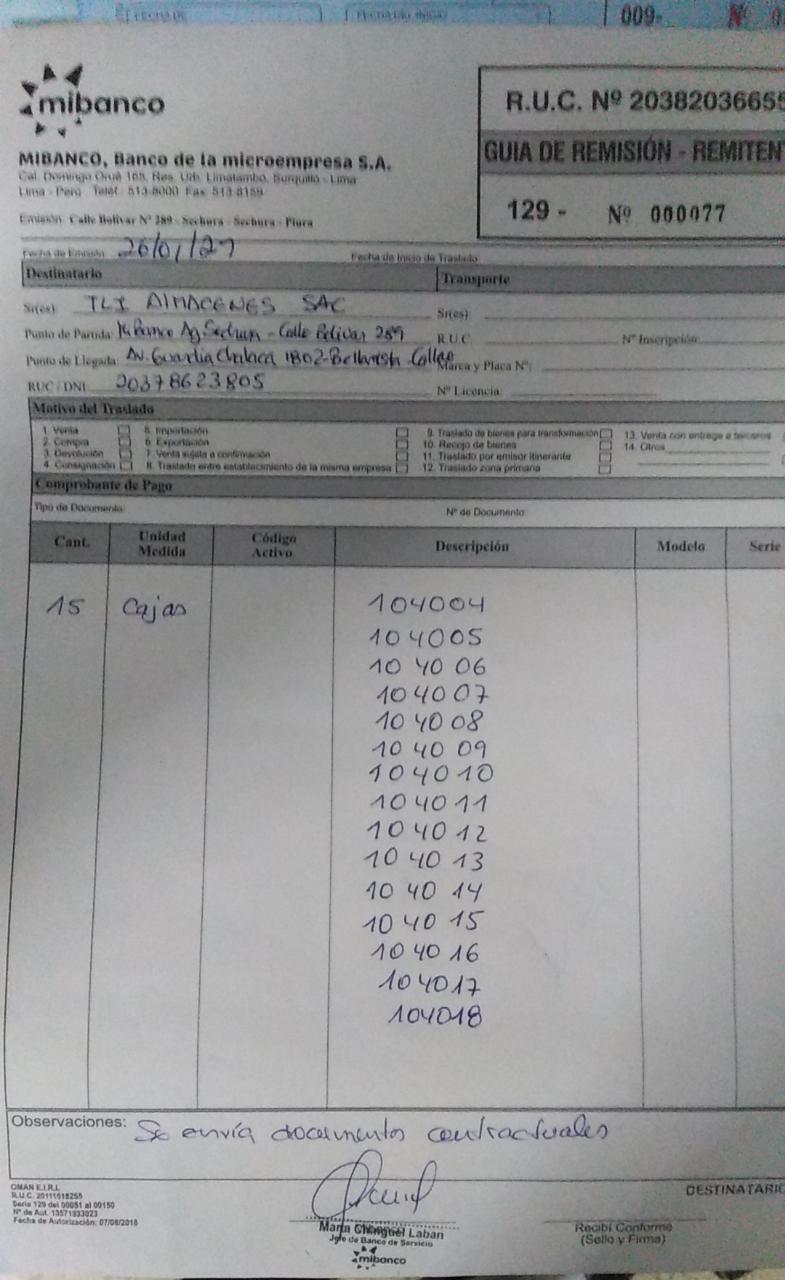 009- Nº 0
mibanco
R.U.C. Nº 20382036655
MIBANCO, Banco de la microempresa S.A.
GUIA DE REMISIÓN - REMITEN
Cal. Domingo Orué 165, Res. Urb. Limatambo, Surquillo - Lima
Lima - Perú Teléf. 513-8000 Fax 513-8159
129 - Nº 000077
Emisión: Calle Bolivar Nº 289 - Sechura - Sechura - Piura
Fecha de Emisión: 26/01/21 Fecha de Inicio de Traslado
Destinatario Transporte
Sr(es): TLI ALMACENES SAC Sr(es):
Punto de Partida: Mi Banco Ag Sechura - Calle Bolivar 289 R.U.C. Nº Inscripción:
Punto de Llegada: Av. Guardia Chalaca 1802-Bellavista - Callao Marca y Placa Nº:
RUC / DNI: 20378623805 Nº Licencia:
Motivo del Traslado
1. Venta 5. Importación 9. Traslado de bienes para transformación 13. Venta con entrega a terceros
2. Compra 6. Exportación 10. Recojo de bienes 14. Otros
3. Devolución 7. Venta sujeta a confirmación 11. Traslado por emisor itinerante
4. Consignación 8. Traslado entre establecimiento de la misma empresa 12. Traslado zona primaria
Comprobante de Pago
Tipo de Documento: Nº de Documento:
Cant. Unidad Medida Código Activo Descripción Modelo Serie
15 Cajas 104004
104005
104006
104007
104008
104009
104010
104011
104012
104013
104014
104015
104016
104017
104018
Observaciones: Se envía documentos contractuales
OMAN E.I.R.L DESTINATARIO
R.U.C. 20111518255
Serie 129 del 00051 al 00150
Nº de Aut. 13571933023
Fecha de Autorización: 07/08/2018
Marta Chinguel Laban
Jefe de Banca de Servicio
mibanco
Recibí Conforme
(Sello y Firma)